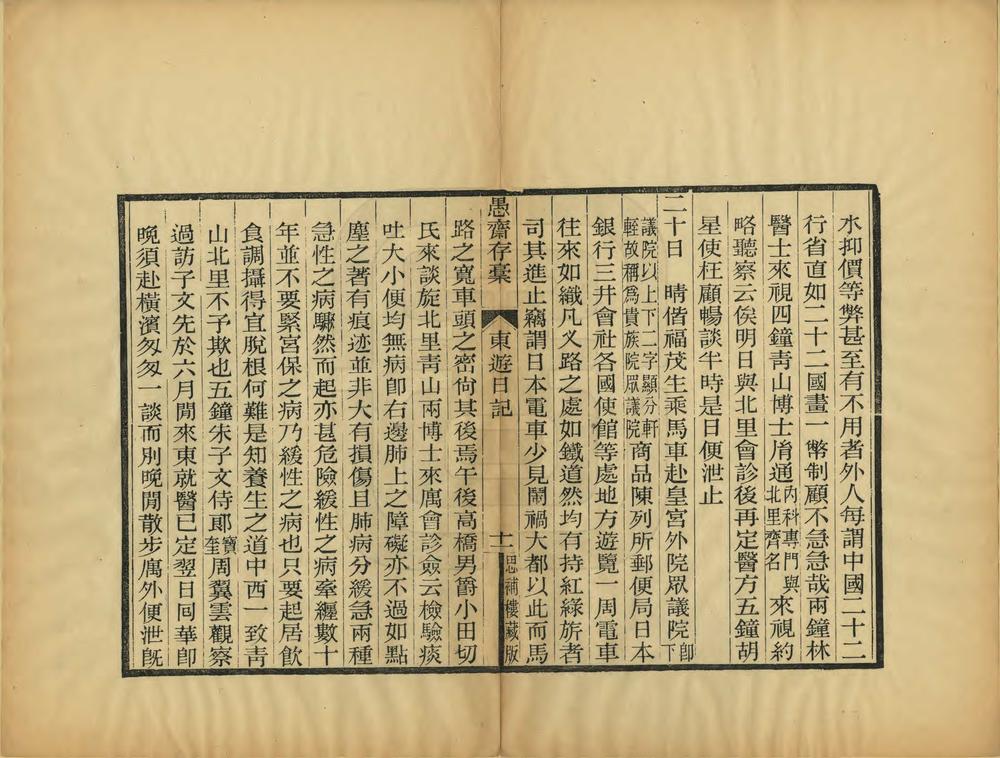 水抑價等弊甚至有不用者外人每謂中國二十二
行省直如二十二國畫一幣制顧不急急哉兩鐘林
醫士來視四鐘青山博士胤通內科專門與北里齊名來視約
略聽察云俟明日與北里會診後再定醫方五鐘胡
星使枉顧暢談半時是日便泄止
二十日 晴偕福茂生乘馬車赴皇宮外院眾議院即下
議院以上下二字顯分軒輊故稱爲貴族院眾議院商品陳列所郵便局日本
銀行三井會社各國使館等處地方遊覽一周電車
往來如織凡义路之處如鐵道然均有持紅綠旂者
司其進止竊謂日本電車少見鬧禍大都以此而馬
愚齋存稾 東遊日記 十一 思補樓藏版
路之寬車頭之密尙其後焉午後高橋男爵小田切
氏來談旋北里青山兩博士來寓會診僉云檢驗痰
吐大小便均無病卽右邊肺上之障礙亦不過如點
塵之著有痕迹並非大有損傷且肺病分緩急兩種
急性之病驟然而起亦甚危險緩性之病牽纏數十
年並不要緊宮保之病乃緩性之病也只要起居飲
食調攝得宜脫根何難是知養生之道中西一致青
山北里不予欺也五鐘朱子文侍郞寶奎周翼雲觀察
過訪子文先於六月間來東就醫已定翌日囘華卽
晚須赴橫濱匆匆一談而別晚間散步寓外便泄旣